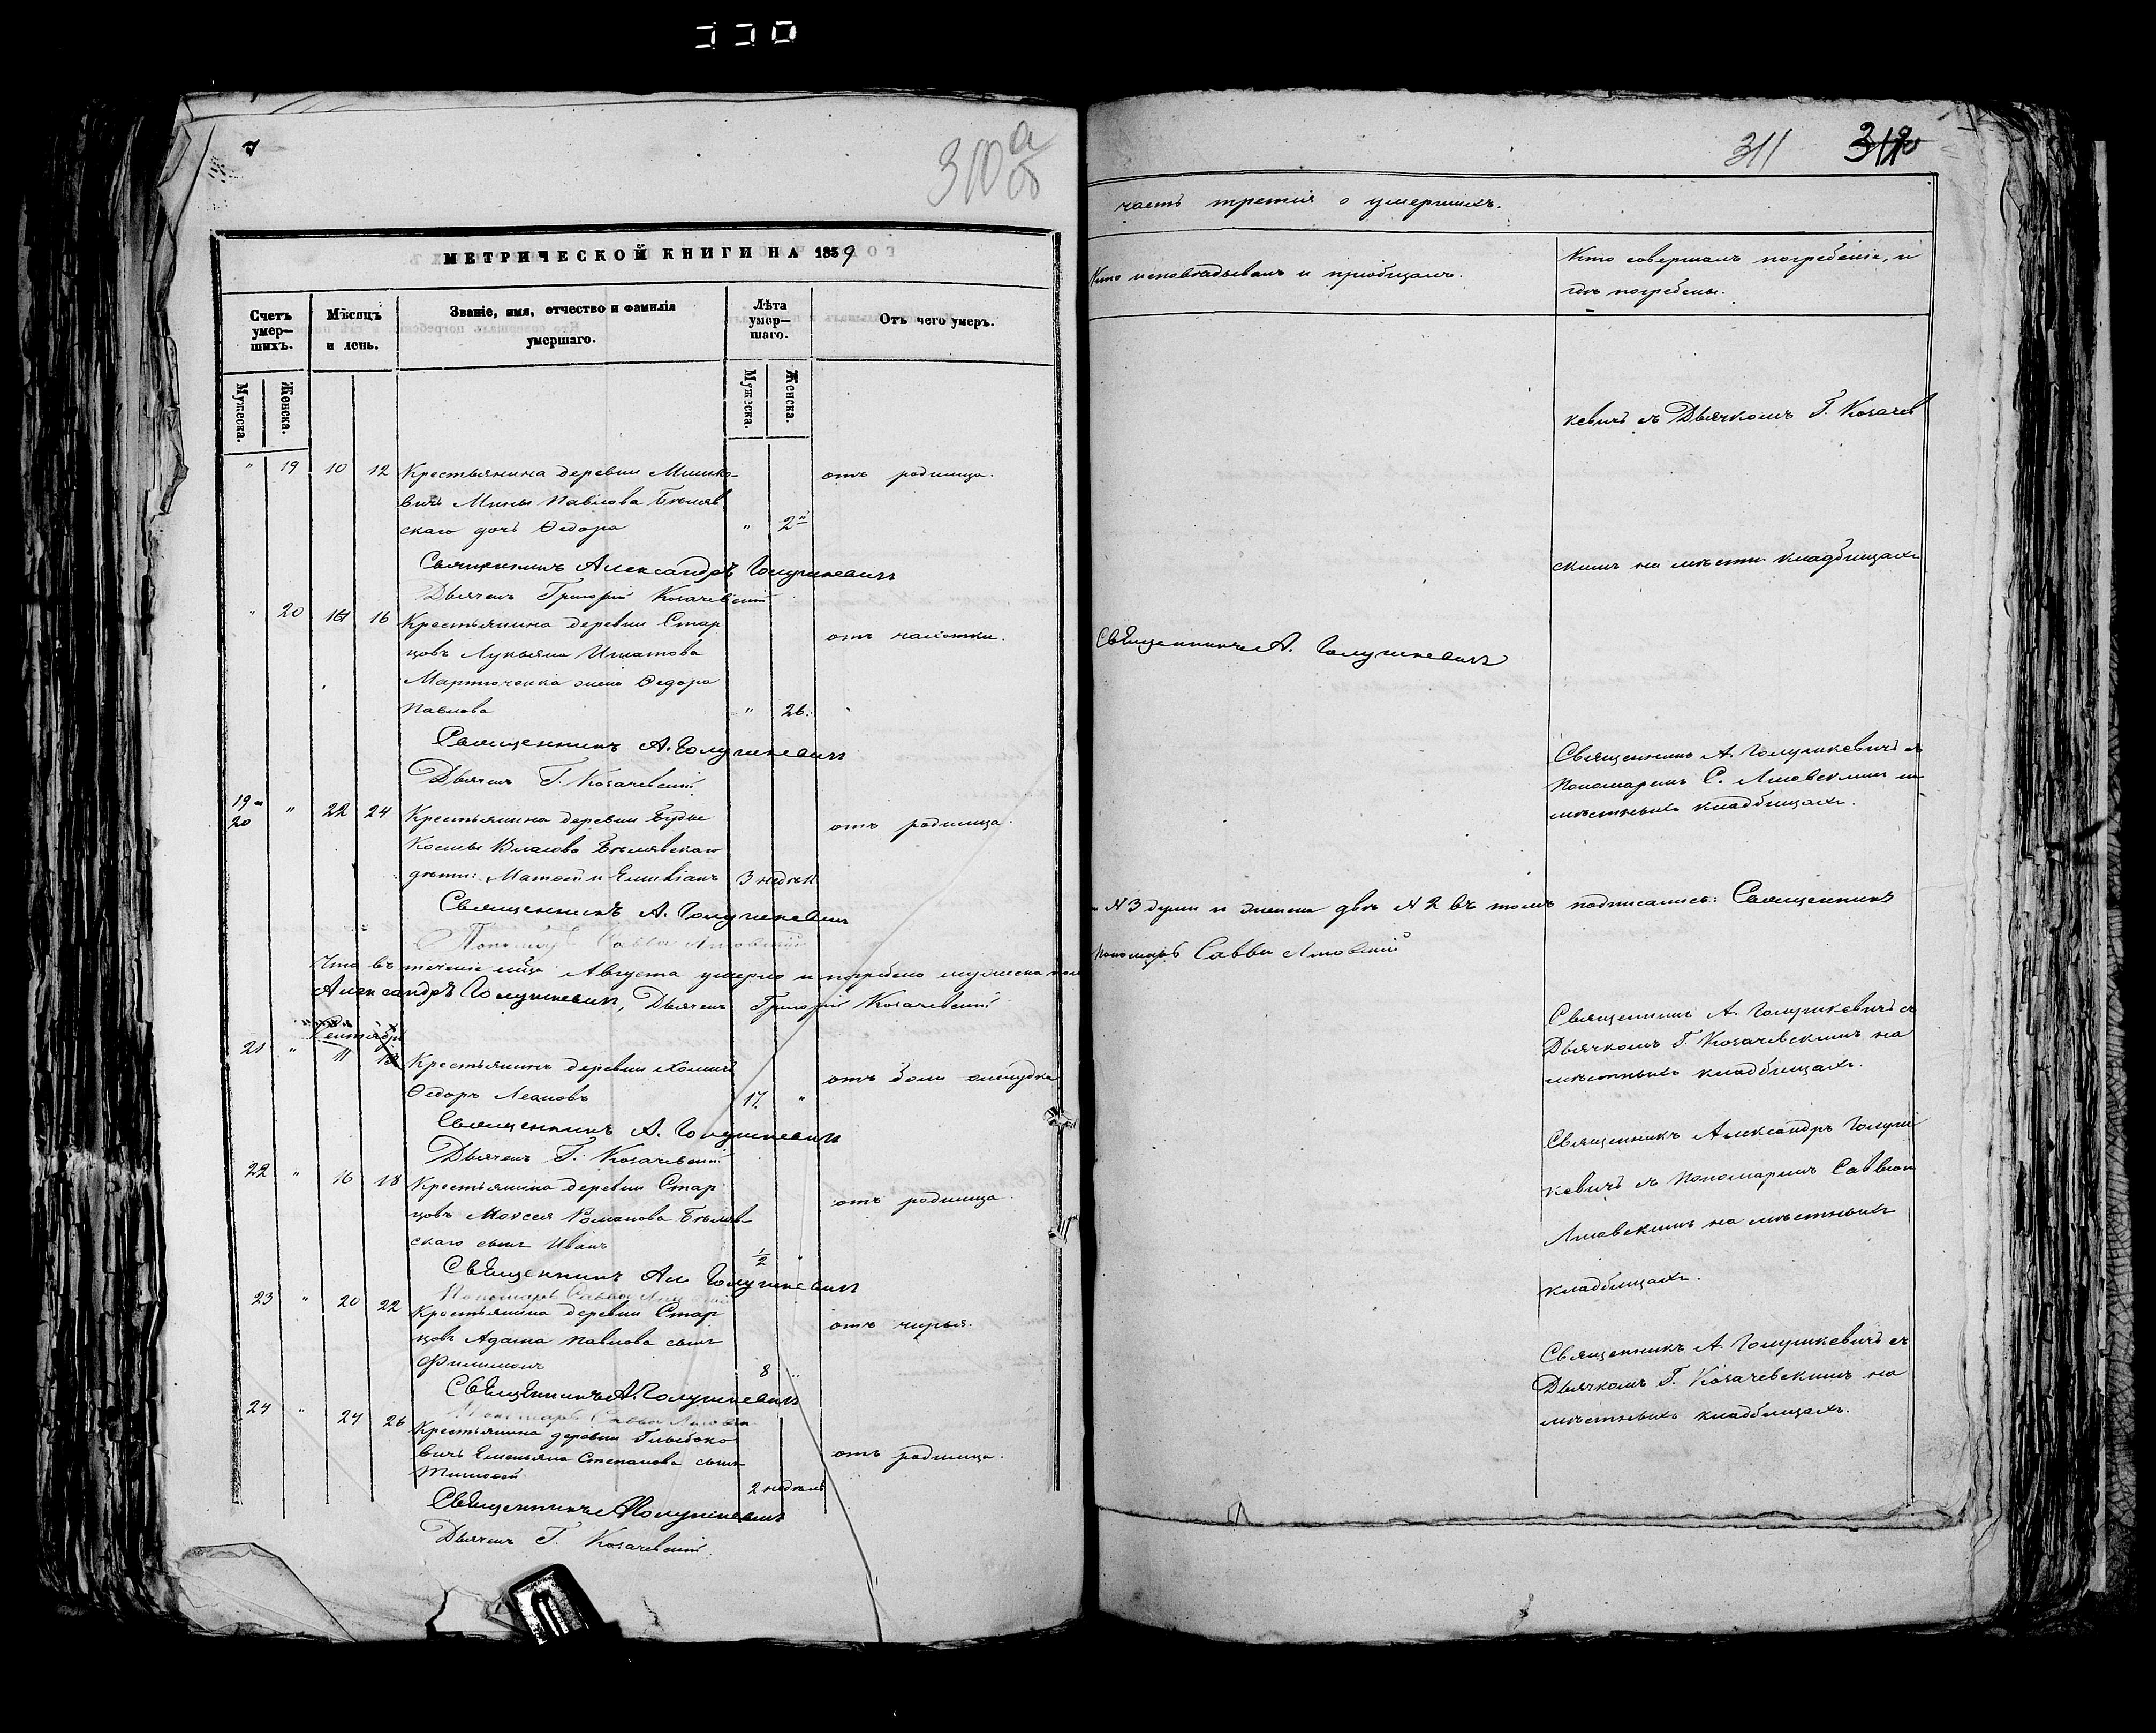 310 а об
МЕТРИЧЕСКОЙ КНИГИ НА 1859
Счетъ умер— шихъ.
Мѣсяцъ и день.
Званіе, имя, отчество и фамилія умершаго.
Лѣта умер— шаго.
Отъ чего умеръ.
Мужеска.
Женска.
Мужеска.
Женска.
" 19 10 12 Крестьянина деревни Мишко- отъ родимца.
вичъ Мины Павлова Бѣляв
скаго дочь Ѳедора " 2
Священникъ Александръ Голушкевичъ
Дьячекъ Григорій Козачевскій
" 20 16 Крестьянина деревни Стар
цовъ Лукьяна Игнатова
жена Ѳедора
Павлова " 26.
Священникъ А. Голушкевичъ
Дьячекъ Г. Козачевскій
19 и 20 " 22 24 Крестьянина деревни Буды отъ родимца.
Козмы Власова Бѣлявскаго
дѣти: Матѳей и 3 недѣли
Священникъ А. Голушкевичъ
Пономарь Савва
Что въ теченіе мѣца Августа умерло и погребено мужеска пола
Александръ Голушкевичъ, Дьячекъ Григорій Козачевскій
Сентябрь
21 " 11 Крестьянинъ деревни отъ боли желудка
Ѳедоръ Леоновъ 17 "
Священникъ А. Голушкевичъ
Дьячекъ Г. Козачевскій
22 " 16 18 Крестьянина деревни Стар отъ родимца.
цовъ Моисея Романова Бѣляв-
скаго сынъ Иванъ 1/2 "
Священникъ Ал Голушкевичъ
Пономарь Савва
23 " 20 22 Крестьянина деревни Стар отъ чирья.
цовъ Адама Павлова сынъ
Филимонъ 8 "
Священникъ А. Голушкевичъ
Пономарь Савва
24 " 24 26 Крестьянина деревни Глыбоко
вичъ Емельяна Степанова сынъ отъ родимца.
Тимофей 2 недѣли
Священникъ А Голушкевичъ
Дьячекъ Г. Козачевскій.
311
часть третія о умершихъ.
Кто исповѣдывалъ и пріобщалъ.
Кто совершалъ погребеніе, и
гдѣ погребены.
кевичъ съ Дьячкомъ Г. Козачев
скимъ на кладбищахъ
Священникъ А. Голушкевичъ
Священникъ А. Голушкевичъ съ
Пономаремъ С. на
мѣстныхъ кладбищахъ.
N 3 души и женска двѣ N 2 въ томъ подписались: Священникъ
Пономарь Савва
Священникъ А. Голушкевичъ съ
Дьячкомъ Г. Козачевскимъ на
мѣстныхъ кладбищахъ.
Священникъ Александръ Голуш
кевичъ съ Пономаремъ Саввою
на мѣстныхъ
кладбищахъ.
Священникъ А. Голушкевичъ съ
Дьячкомъ Г. Козачевскимъ на
мѣстныхъ кладбищахъ.